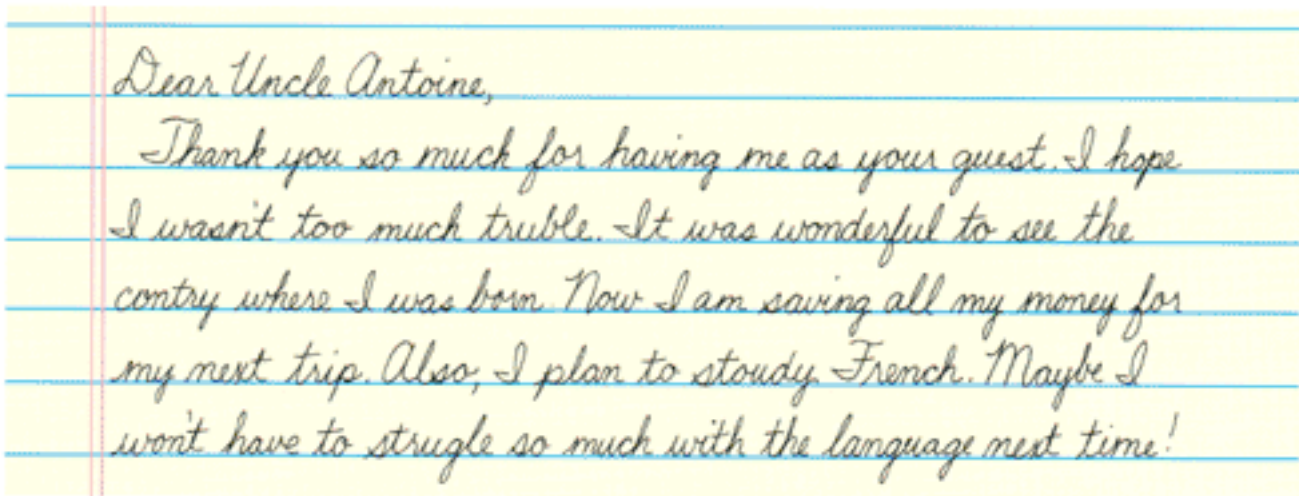 Dear Uncle Antoine,
Thank you so much for having me as your guest. I hope
I wasn't too much truble. It was wonderful to see the
contry where I was born. Now I am saving all my money for
my next trip. Also, I plan to stoudy French. Maybe I
won't have to strugle so much with the language next time!